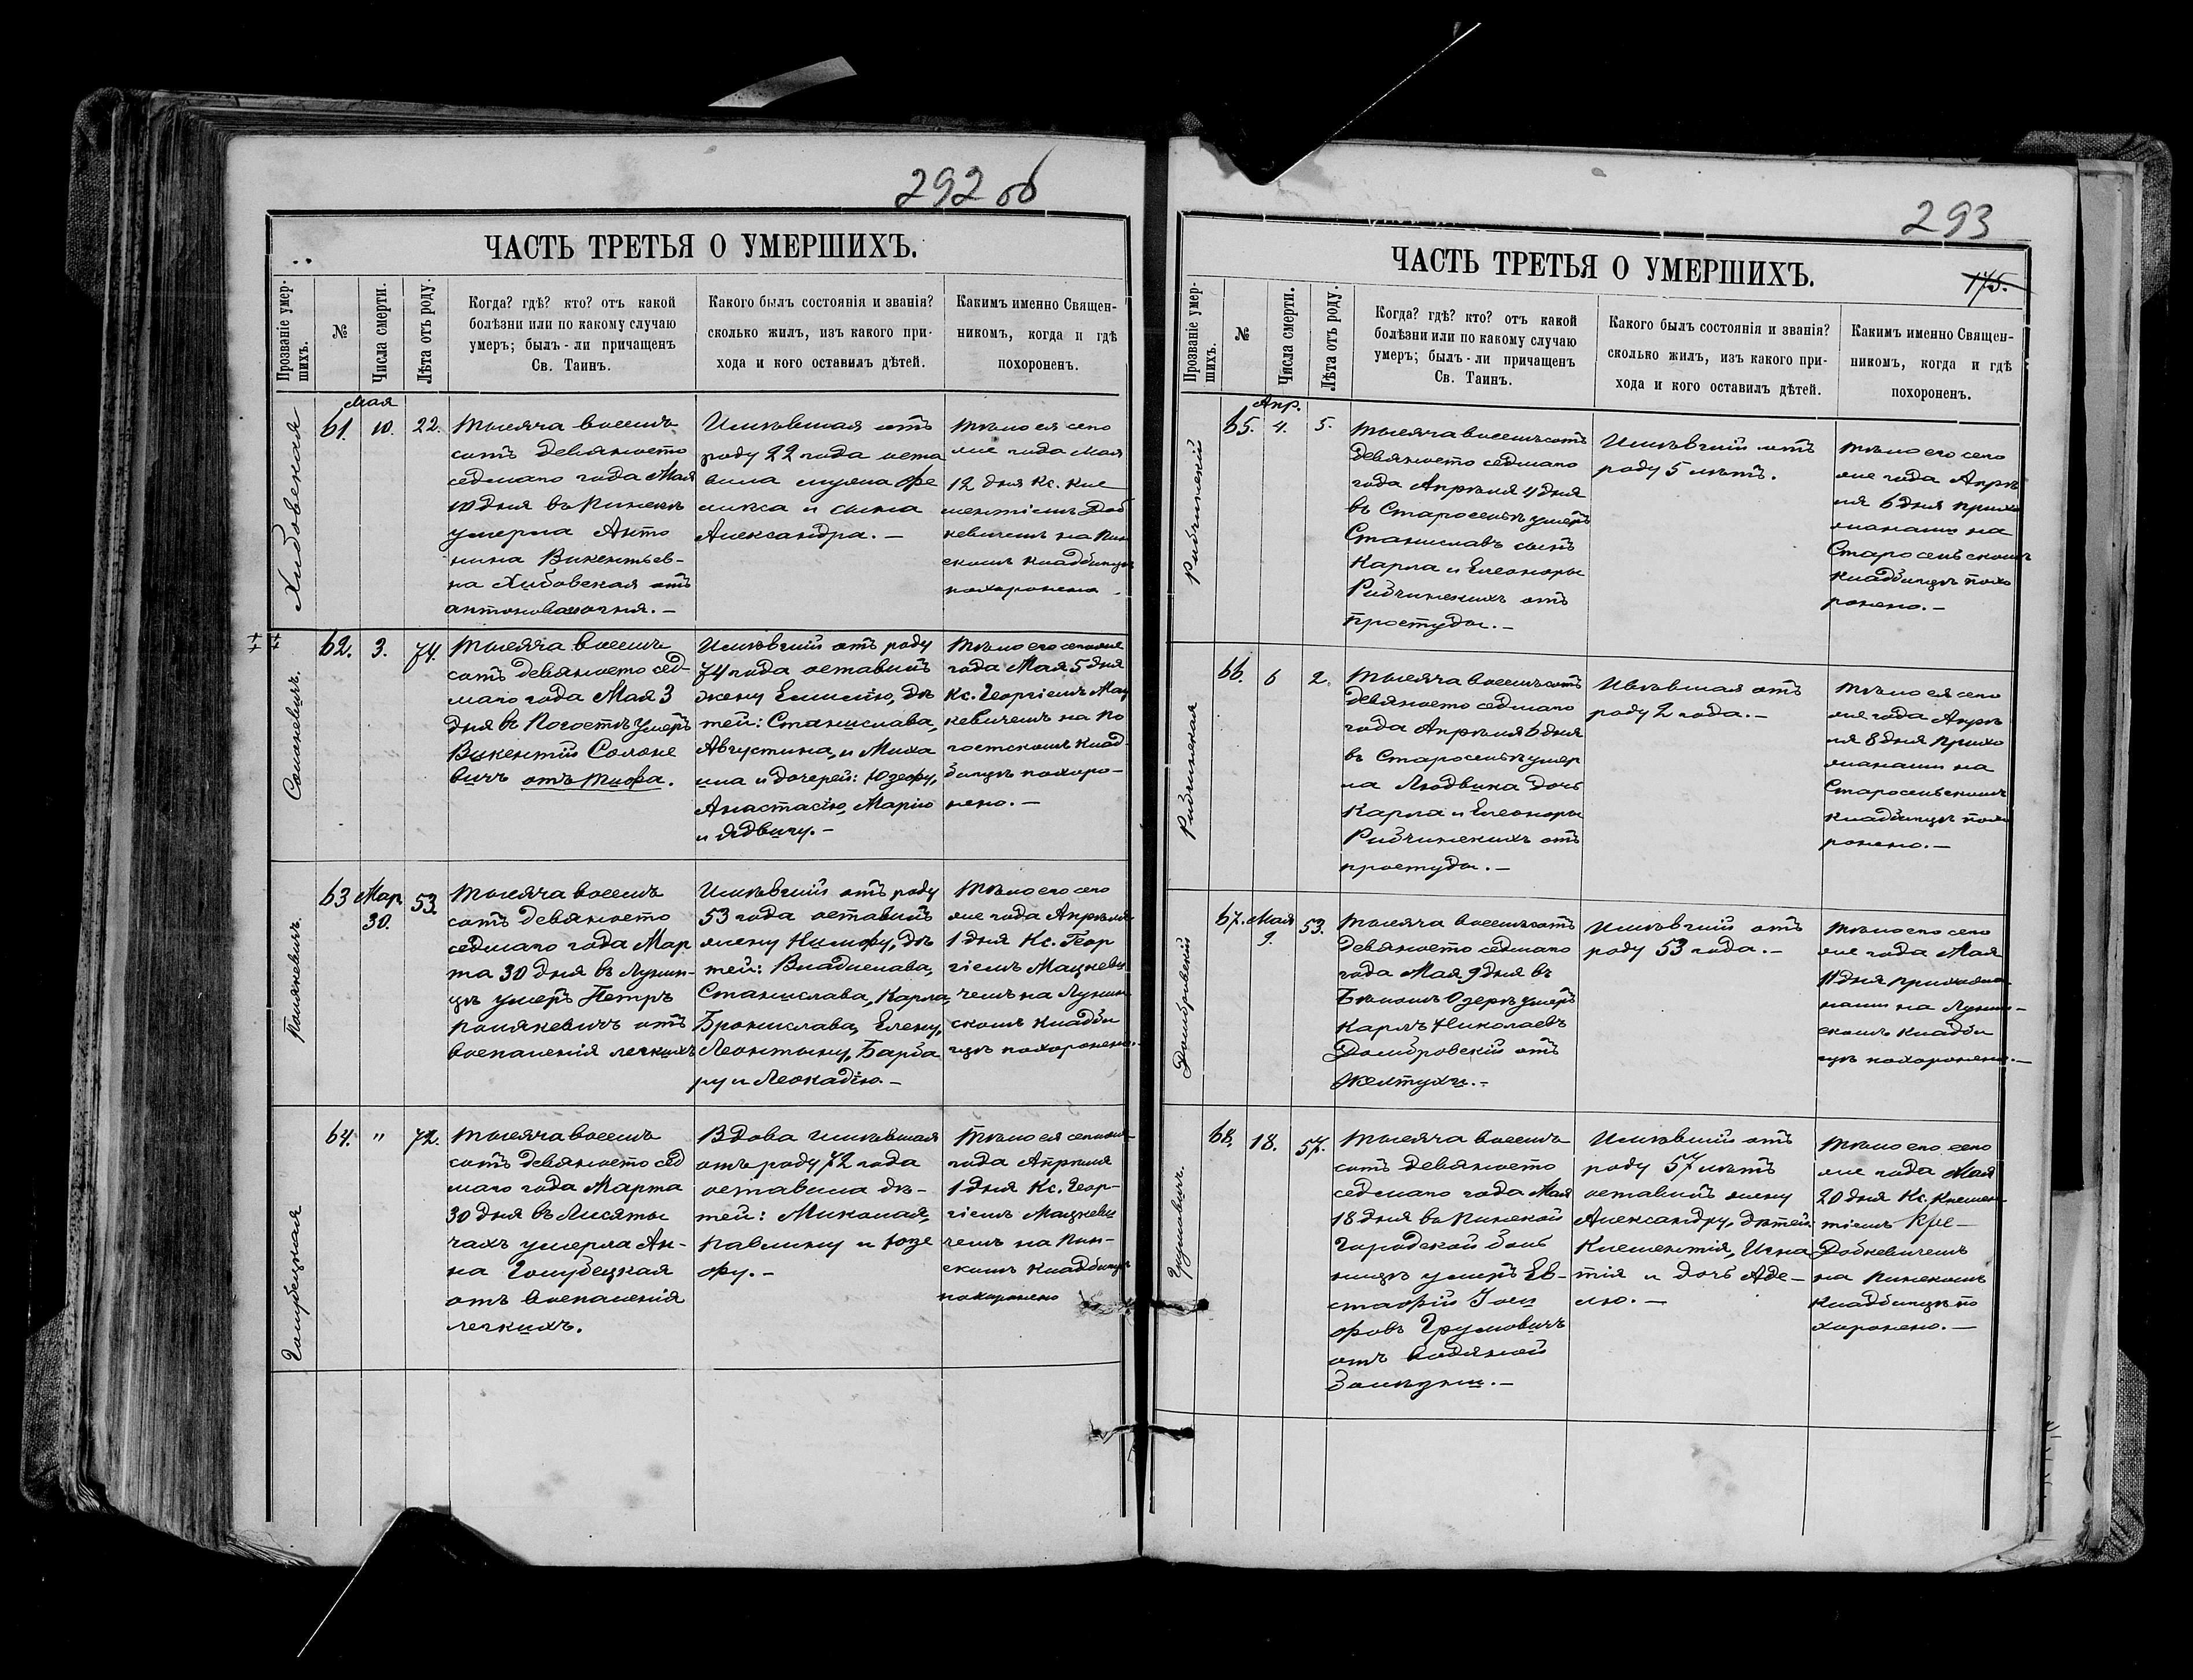 292 об
ЧАСТЬ ТРЕТЬЯ О УМЕРШИХЪ.
Прозваніе умер-
шихъ.
№
Числа смерти.
Лѣта отъ роду.
Когда? гдѣ? кто? отъ какой
болѣзни или по какому случаю
умеръ; былъ-ли причащенъ
Св. Таинъ.
Какого былъ состоянія и званія?
сколько жилъ, изъ какого при-
хода и кого оставилъ дѣтей.
Какимъ именно Священ-
никомъ, когда и гдѣ
похороненъ.
Хибовская
61.
Мая
10.
22.
Тысяча восемь
сотъ девяносто
седмаго года Мая
10 дня въ Пинскѣ
умерла Анто
нина Викентьев-
на Хибовская отъ
антонова огня. –
Имѣвшая отъ
роду 22 года оста
вила мужа Фе
ликса и сына
Александра. –
Тѣло ея сего
же года Мая
12 дня Кс. Кле
ментіемъ Доб
кевичемъ на Пин
скомъ кладбищѣ
похоронено.
Солоневичъ.
62.
3.
74.
Тысяча восемь
сотъ девяносто сед-
маго года Мая 3
дня въ Погостѣ умеръ
Викентій Солоне
вичъ отъ тифа.
Имѣвшій отъ роду
74 года оставилъ
жену Емилію, дѣ
тей: Станислава,
Августина, и Миха
ила и дочерей: Юзефу,
Анастасію, Марію
и Ядвигу. –
Тѣло его сегоже
года Мая 5 дня
Кс. Георгіемъ Мац
кевичемъ на По
гостскомъ клад-
бищѣ похоро-
нено. –
Поляневичъ.
63
Мар.
30.
53.
Тысяча восемь
сотъ девяносто
седмаго года Мар
та 30 дня въ Лунин-
цѣ умеръ Петръ
Полякевичъ отъ
воспаленія легкихъ
Имѣвшій отъ роду
53 года оставилъ
жену Нимфу, дѣ
тей: Владислава,
Станислава, Карла,
Бронислава, Елену,
Леонтыну, Барба
ру и Леокадію. –
Тѣло его сего
же года Апрѣля
1 дня Кс. Геор
гіемъ Мацкеви
чемъ на Лунин-
скомъ кладби
щѣ похоронено. –
Голубецкая
64.
"
72.
Тысяча восемь
сотъ девяносто сед
маго года Марта
30 дня въ Лисяты
чахъ умерла Ан-
на Голубецкая
отъ воспаленія
легкихъ.
Вдова имѣвшая
отъ роду 72 года
оставила дѣ-
тей: Миколая,
Павлину и Юзе
фу. –
Тѣло ея сегоже
года Апрѣля
1 дня Кс. Геор-
гіемъ Мацкеви
чемъ на Пин-
скимъ кладбищѣ
похоронено
293
ЧАСТЬ ТРЕТЬЯ О УМЕРШИХЪ.
175.
Прозваніе умер-
шихъ.
№
Числа смерти.
Лѣта отъ роду.
Когда? гдѣ? кто? отъ какой
болѣзни или по какому случаю
умеръ; былъ-ли причащенъ
Св. Таинъ.
Какого былъ состоянія и званія?
сколько жилъ, изъ какого при-
хода и кого оставилъ дѣтей.
Какимъ именно Священ-
никомъ, когда и гдѣ
похороненъ.
Рибчинскій
65.
Апр.
4.
5.
Тысяча восемьсотъ
девяносто седмаго
года Апрѣля 4 дня
въ Староселѣ умеръ
Станиславъ сынъ
Карла и Елеоноры
Рибчинскихъ отъ
простуды. –
Имѣвшій отъ
роду 5 лѣтъ.
Тѣло его сего
же года Апрѣ
ля 6 дня прихо
жанами на
Старосельскомъ
кладбищѣ похо
ронено. –
Рибчинская
66.
6
2.
Тысяча восемьсотъ
девяносто седмаго
года Апрѣля 6 дня
въ Староселѣ умер
ла Людвика дочь
Карла и Елеоноры
Рибчинскихъ отъ
простуды. –
Имѣвшая отъ
роду 2 года. –
Тѣло ея сего
же года Апрѣ
ля 8 дня прихо
жанами на
Старосельскомъ
кладбищѣ похо
ронено. –
Домбровскій
67.
Мая
9.
53.
Тысяча восемьсотъ
девяносто седмаго
года Мая 9 дня въ
Бѣломъ Озерѣ умеръ
Карлъ Николаевъ
Домбровскій отъ
желтухи. –
Имѣвшій отъ
роду 53 года. –
Тѣло его сего
же года Мая
11 дня прихожа
нами на Лунин-
скомъ кладби
щѣ похоронено. –
Грумовичъ.
68.
18.
57.
Тысяча восемь
сотъ девяносто
седмаго года Мая
18 дня въ Пинской
Городской боль
ницѣ умеръ Ев-
стафій Іоси
фовъ Грумовичъ
отъ водяной
болѣзни. –
Имѣвшій отъ
роду 57 лѣтъ
оставилъ жену
Александру, дѣтей:
Клементія, Игна
тія и дочь Аде-
лю. –
Тѣло его сего
же года Мая
20 дня Кс. Клемен
тіемъ Кле-
Добкевичемъ
на Пинскомъ
кладбищѣ по
хоронено. –